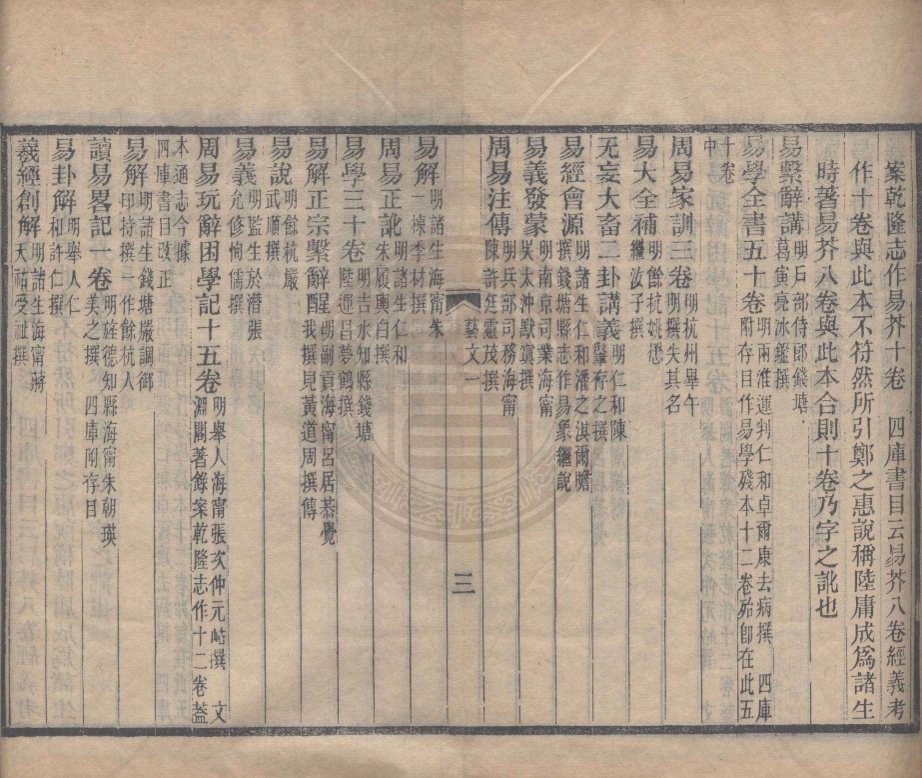 案乾隆志作易芥十卷　四庫書目云易芥八卷經義考
作十卷與此本不符然所引鄭之惠說稱陸庸成爲諸生
時著易芥八卷與此本合則十卷乃字之訛也
易繫辭講明戶部侍郎錢塘葛寅亮冰鑑撰
易學全書五十卷明兩淮運判仁和卓爾康去病撰　四庫附存目作易學殘本十二卷殆卽在此五
十卷中
周易家訓三卷明杭州舉午明撰失其名
易大全補明餘杭姚懋繼汝子撰
无妄大畜二卦講義明仁和陳肇存之撰
易經會源明諸生仁和潘之淇爾瞻撰錢塘縣志作易象繼說
易義發蒙明南京司業海甯吳太沖默寘撰
周易注傳明兵部司務海甯陳許廷靈茂撰
藝文一
三
易解明諸生海甯朱一楝李材撰
周易正訛明諸生仁和朱履輿白撰
易學三十卷明吉水知縣錢塘陸運昌夢鶴撰
易解正宗繫辭醒明副將海甯呂居恭覺我撰見黃道周撰傳
易說明餘杭嚴武順撰
易義明監生於潛張允修恂儒撰
周易玩辭困學記十五卷明舉人海甯張次仲元岵撰　文淵閣著錄案乾隆志作十二卷葢
本通志今據四庫書目改正
易解明諸生錢塘嚴調御印持撰一作餘杭人
讀易畧記一卷明旌德知縣海甯朱朝瑛美之撰　四庫附存目
易卦解明舉人仁和許仁撰
羲經創解明諸生海甯蔣天祐受祉撰